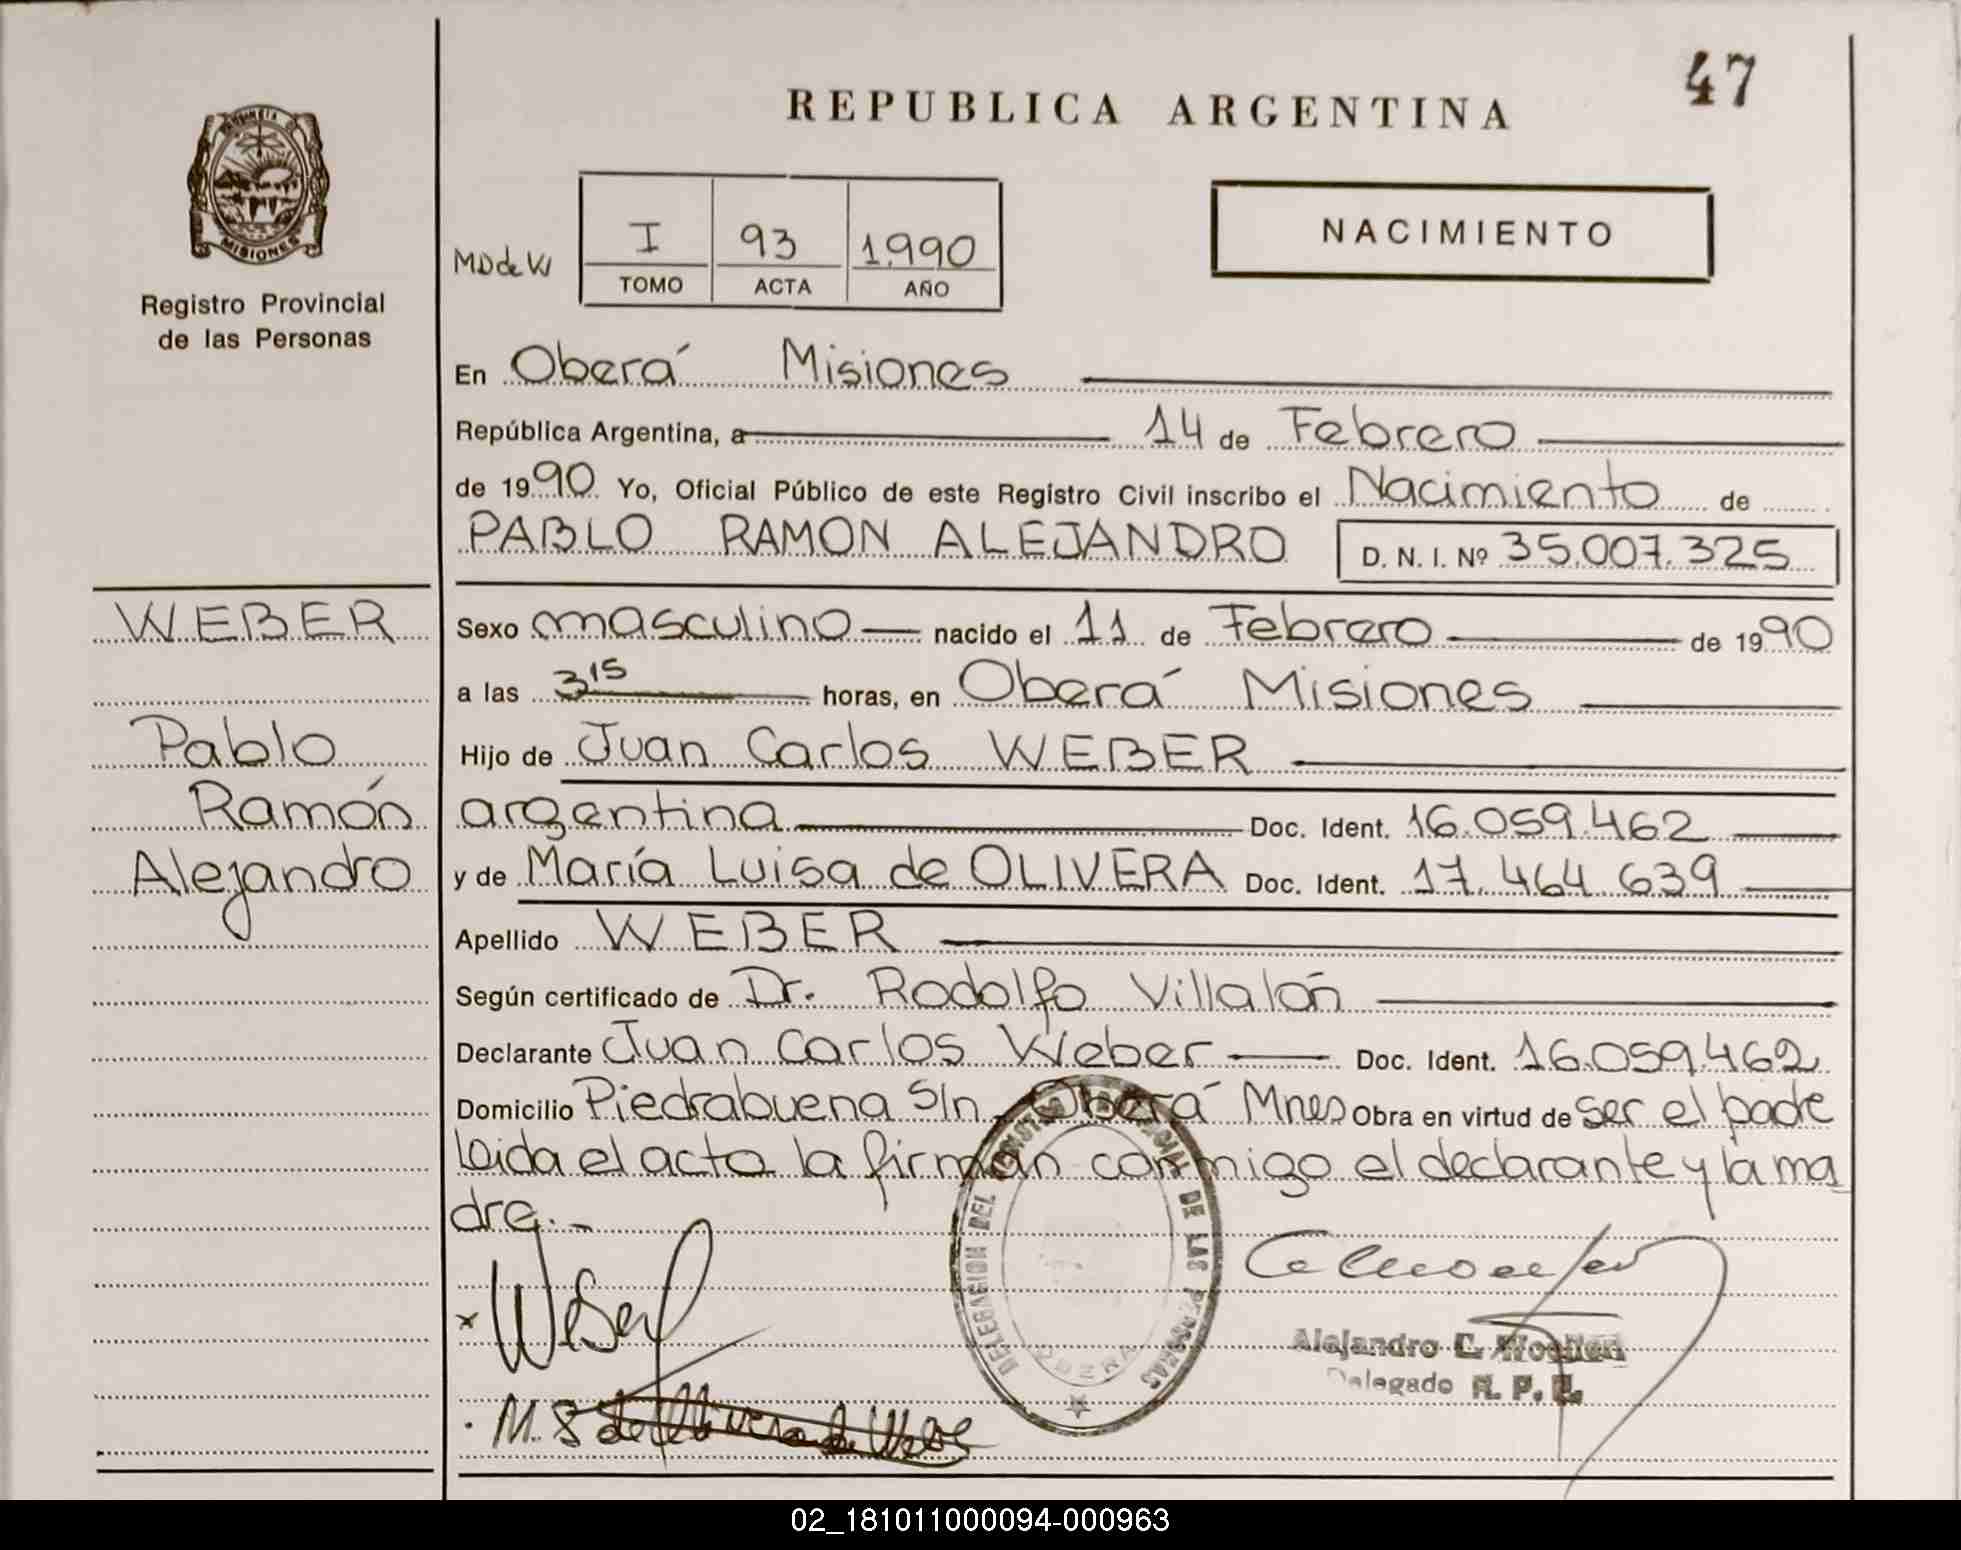 47
REPUBLICA ARGENTINA
PROVINCIA D
MISIONES
Registro Provincial
de las Personas
NACIMIENTO
MD de W
I 93 1.990
TOMO ACTA AÑO
En Oberá Misiones
República Argentina, a 14 de Febrero
de 1990 Yo, Oficial Público de este Registro Civil inscribo el Nacimiento de
PABLO RAMON ALEJANDRO D. N. I. Nº 35.007.325
WEBER
Pablo
Ramón
Alejandro
Sexo masculino nacido el 11 de Febrero de 1990
a las 3 15 horas, en Oberá Misiones
Hijo de Juan Carlos WEBER
argentina Doc. Ident. 16.059.462
y de María Luisa de OLIVERA Doc. Ident. 17.464 639
Apellido WEBER
Según certificado de Dr. Rodolfo Villalón
Declarante Juan Carlos Weber Doc. Ident. 16.059.462
Domicilio Piedrabuena S/n Oberá Mnes Obra en virtud de ser el padre
leida el acta la firman conmigo el declarante y la ma
dre.-
DELEGACION DEL REGISTRO PROVINCIAL DE LAS PERSONAS
OBERA
x Weber
Alejandro C.
Delegado R. P. P.
02_181011000094-000963